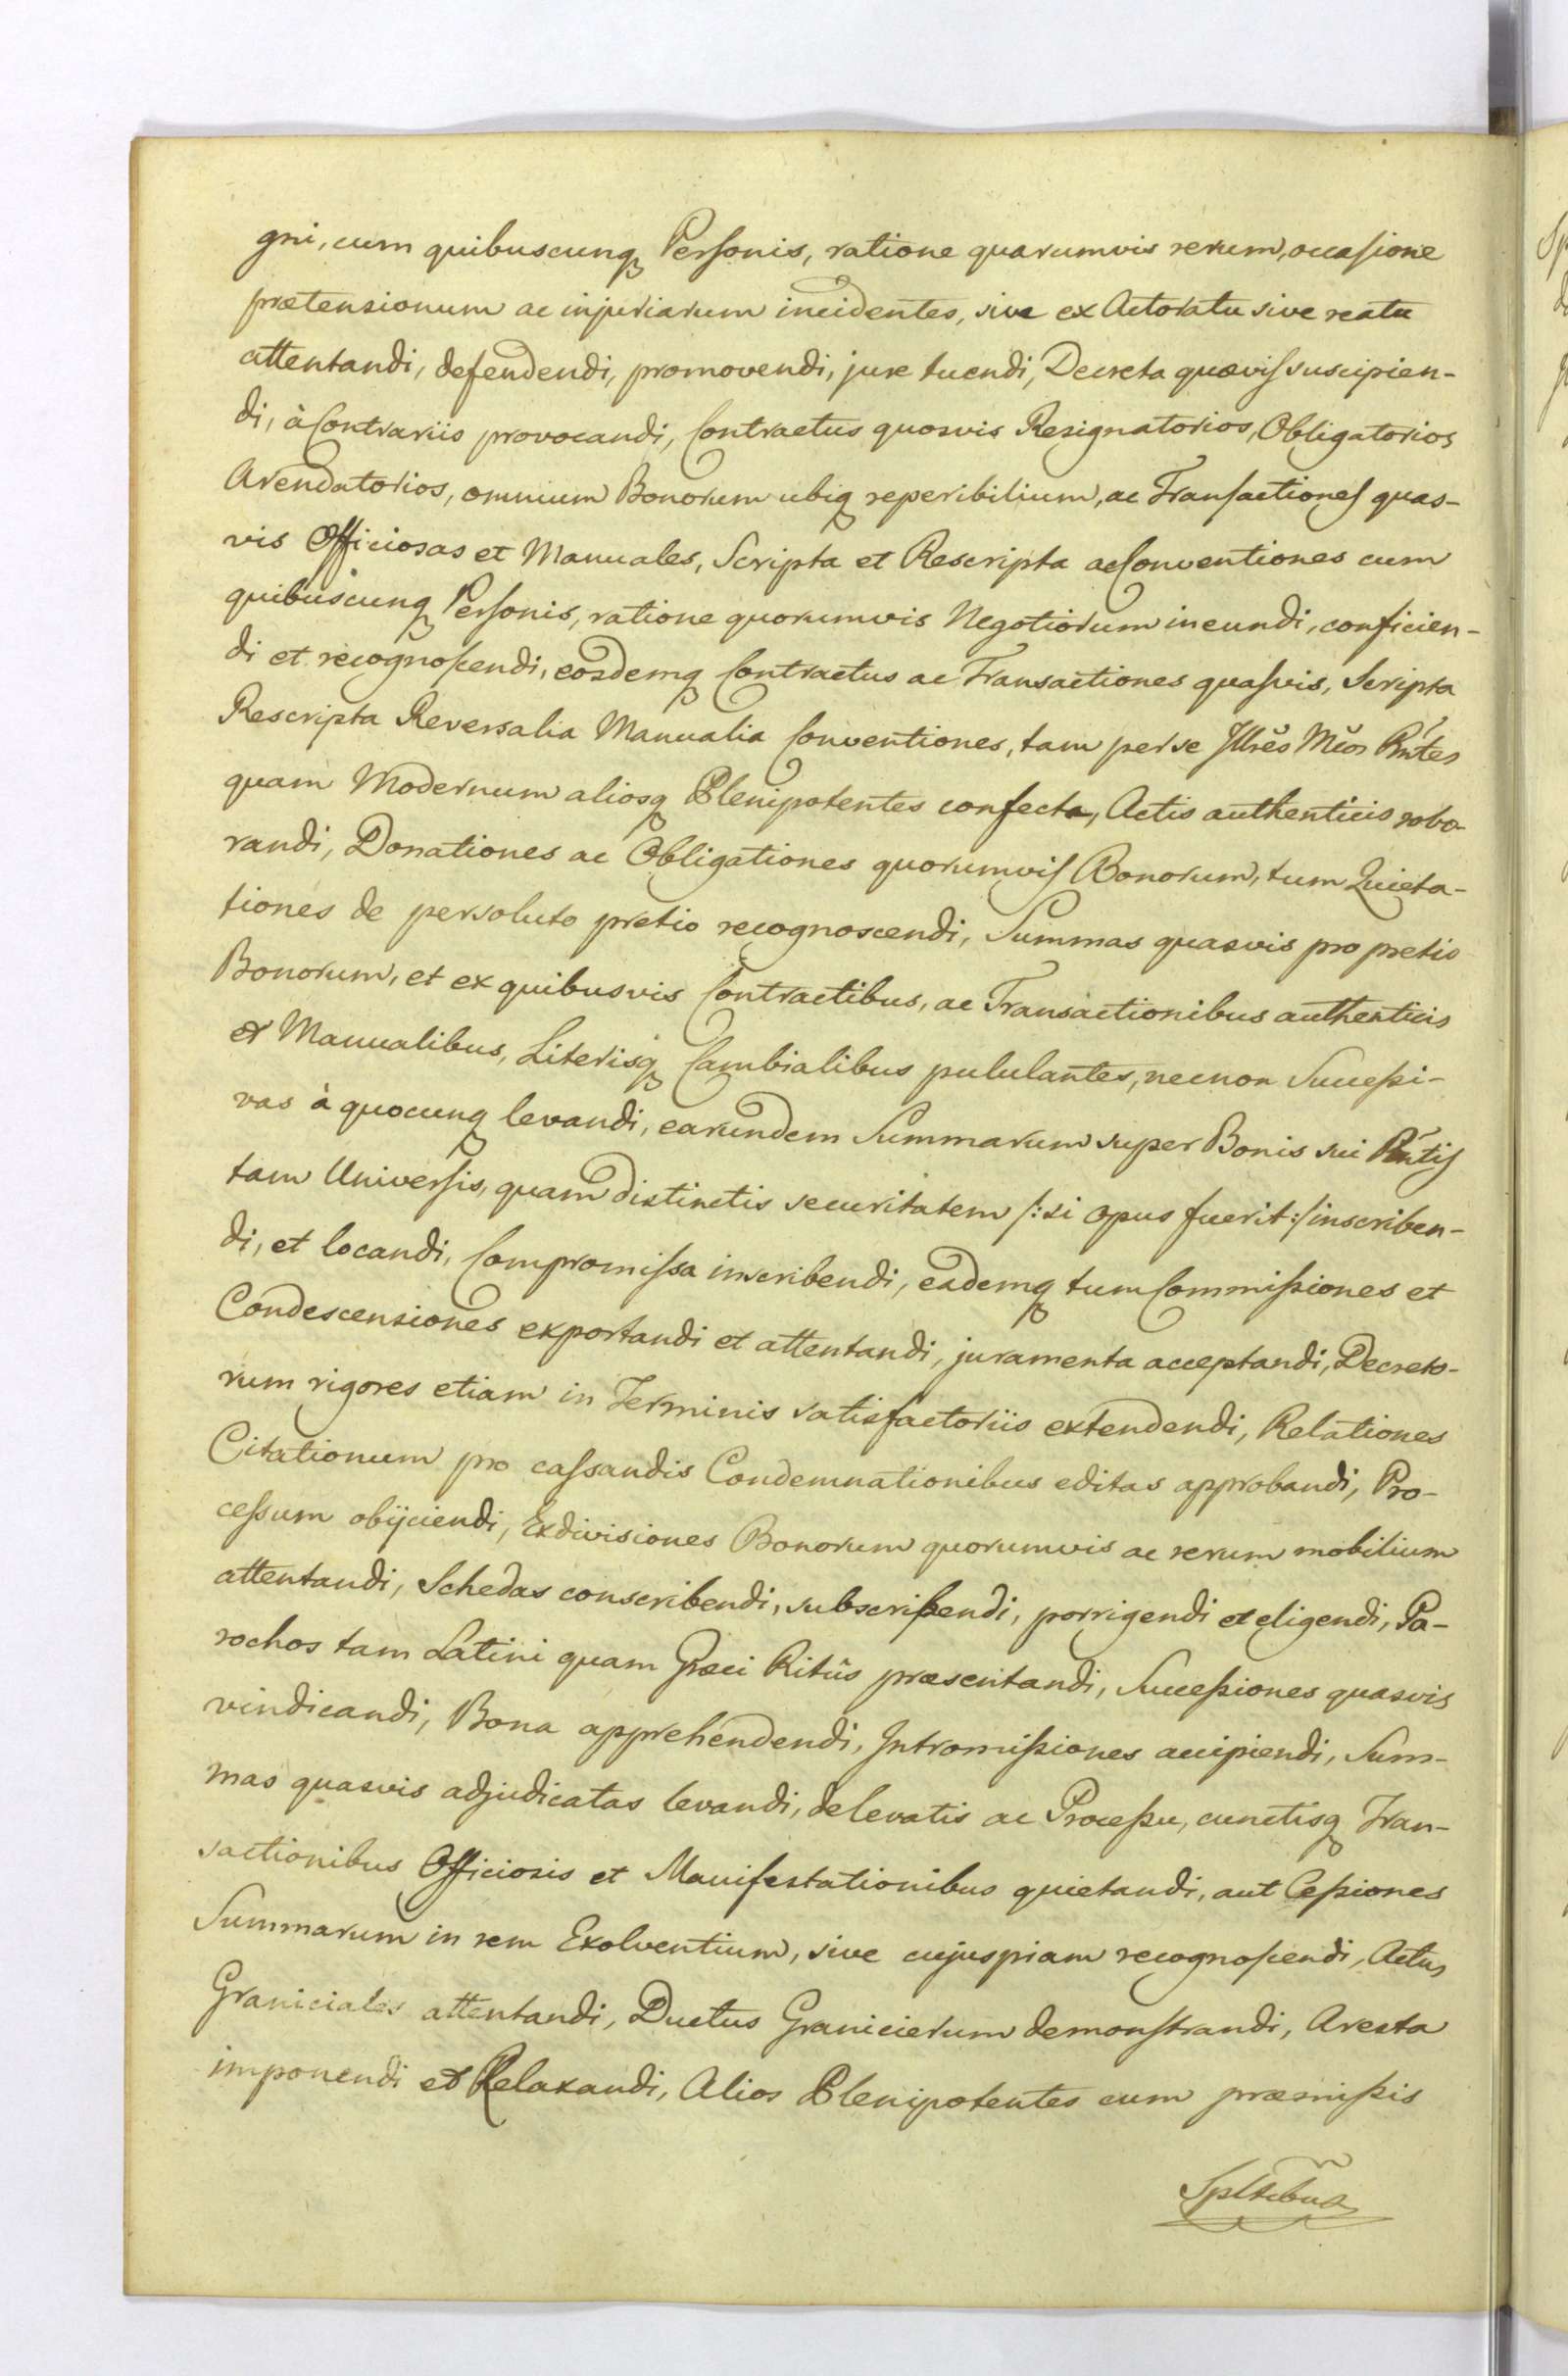 gni, cum quibuscunq Personis, ratione quarumvis rerum, occasione
prætensionum ac injuriarum incidentes, sive ex Actoratu sive reatu
attentandi, defendendi, promovendi, jure tuendi, Decreta quævis suscipien-
di, à Contrariis provocandi, Contractus quosvis Resignatorios, Obligatorios
Arendatorios, omnium Bonorum ubiq reperibilium, ac Transactiones quas-
vis Officiosas et Manuales, Scripta et Rescripta ac Conventiones cum
quibuscunq Personis, ratione quorumvis Negotiorum ineundi, conficien-
di et recognoscendi, eosdemq Contractus ac Transactiones quasvis, Scripta
Rescripta Reversalia Manualia Conventiones, tam per se Illres Mcos Pntes
quam Modernum aliosq Plenipotentes confecta, Actis authenticis robo-
randi, Donationes ac Obligationes quorumvis Bonorum, tum Quieta-
tiones de persoluto pretio recognoscendi, Summas quasvis pro pretio
Bonorum, et ex quibusvis Contractibus, ac Transactionibus authenticis
et Manualibus, Literisq Cambialibus pululantes, necnon Successi-
vas à quocunq levandi, earundem Summarum super Bonis sui Pntis
tam Universis, quam distinctis securitatem /: si opus fuerit :/ inscriben-
di, et locandi, Compromissa inscribendi, eademq tum Commissiones et
Condescensiones exportandi et attentandi, juramenta acceptandi, Decreto-
rum rigores etiam in Terminis satisfactoriis extendendi, Relationes
Citationum pro cassandis Condemnationibus editas approbandi, Pro-
cessum obijciendi, Exdivisiones Bonorum quorumvis ac rerum mobilium
attentandi, Schedas conscribendi, subscribendi, porrigendi et eligendi, Pa-
rochos tam Latini quam Græci Ritûs præsentandi, Successiones quasvis
vindicandi, Bona apprehendendi, Intromissiones accipiendi, Sum-
mas quasvis adjudicatas levandi, de levatis ac Processu, cunctisq Tran-
sactionibus Officiosis et Manifestationibus quietandi, aut Cessiones
Summarum in rem Exolventium, sive cujuspiam recognoscendi, Actus
Graniciales attentandi, Ductus Granicierum demonstrandi, Aresta
imponendi et Relaxandi, Alios Plenipotentes cum præmissis
Spltibus